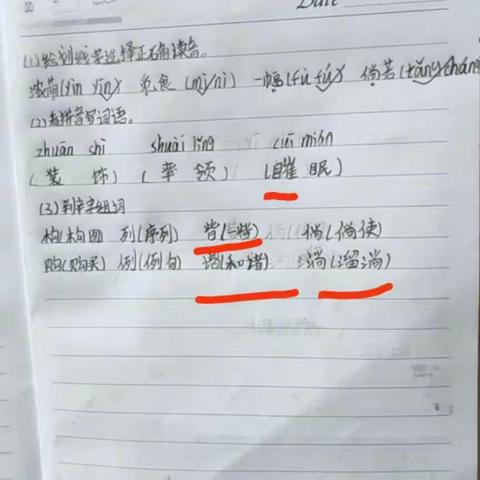 Date
(1)给划线字选择正确读音。
(yīn yìn) 觅食(mì/nì) 一幅(fú fú) 倘若(tǎng/cháng
(2)看拼音写词语。
zhuān shì shuài lǐng cuī mián
(装 饰) (率 领) (眠)
(3)
构(构图) 列(序列) 皆( 倘(倘使)
购(购买) 例(例句) 谐(和谐) 淌(溜淌)